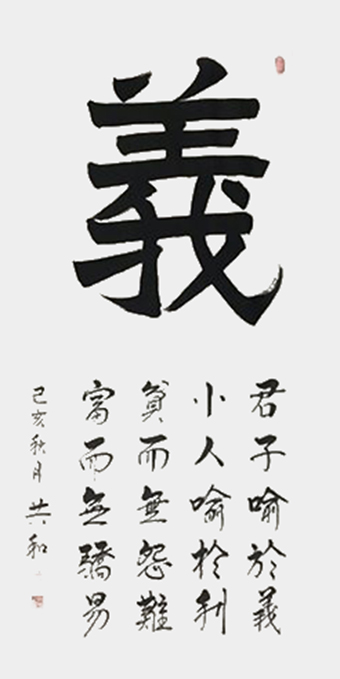 義
君子喻於義
小人喻於利
貧而無怨難
富而無驕易
己亥秋月 共和